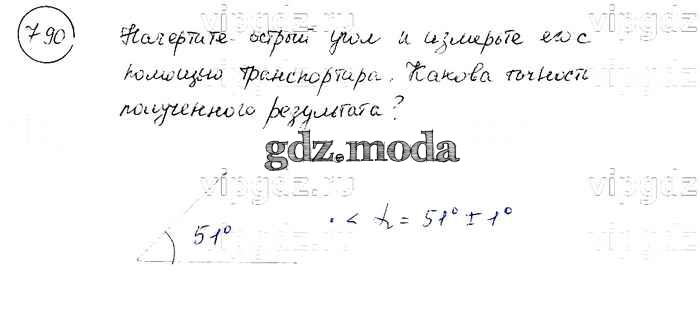 790
Начертите острый угол и измерьте его с
помощью транспортира. Какова точность
полученного результата?
gdz.moda
vipgdz.ru
vipgdz.ru
vipgdz.ru
vipgdz.ru
51°
= 51° ± 1°